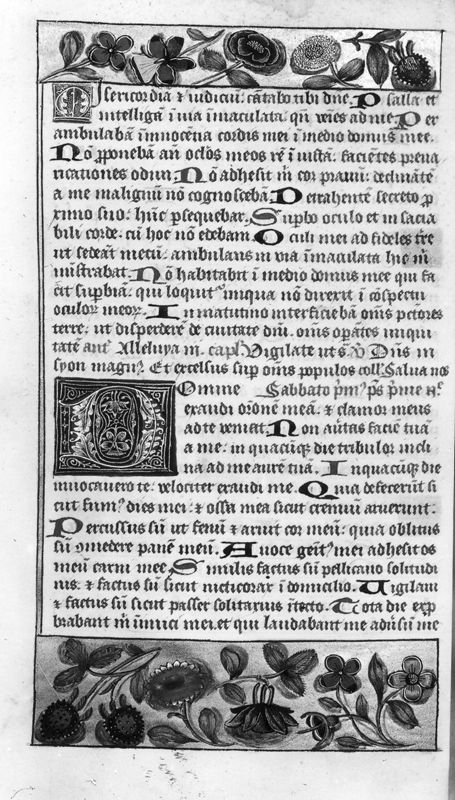 Misericordiā & iudiciū cātabo tibi dn̄e. Psallā et
intelligā ī via īmaculata. qn̄ veies ad me. Per
ambulabā ī īnocētia cordis mei ī medio domus mee.
Nō p̄ponebā an̄ oclōs meos rē ī iustā. faciētes preua
ricationes odiui. Nō adhesit m̄ cor prauū. declināte
a me malignū nō cognoscebā. Detrahentē secreto p̄
ximo suo. hūc p̄sequebar. Supbo oculo et in sacia
bili corde. cū hoc nō edebam. Oculi mei ad fideles tr̄e
ut sedeāt mecū. ambulans in via īmaculata hic m̄
ministrabat. Nō habitabit ī medio domus mee qui fa
cit supbiā. qui loquit' iniqua nō direxit ī cōspectu
oculor meor. In matutino interficiebā om̄s pctores
terre. ut disperderē de ciuitate dn̄i. om̄s opātes iniqui
tatē. ant̄ Alleluya m̄. capl̄. Vigilate ut s. Dn̄s in
syon magn'. Et excelsus sup om̄s populos. coll. Salua nos
Domine Sabbato p̄m' ps̄
exaudi or̄onē meā. & clamor meus
ad te veniat. Non auertas faciē tuā
a me. in quacūq; die tribulor incli
na ad me aurē tuā. In quacūq; die
inuocauero te. velociter exaudi me. Quia defecerūt si
cut fum' dies mei. & ossa mea sicut cremiū aruerunt.
Percussus sū ut fenū & aruit cor meū. quia oblitus
sū 9medere panē meū. A uoce gemit' mei adhesit os
meū carni mee. Similis factus sū pellicano solitudi
nis. & factus sū sicut nicticorax ī domicilio. Vigilaui
& factus sū sicut passer solitarius ī tecto. Tota die exp̄
brabant m̄ inimici mei. et qui laudabant me adusū me